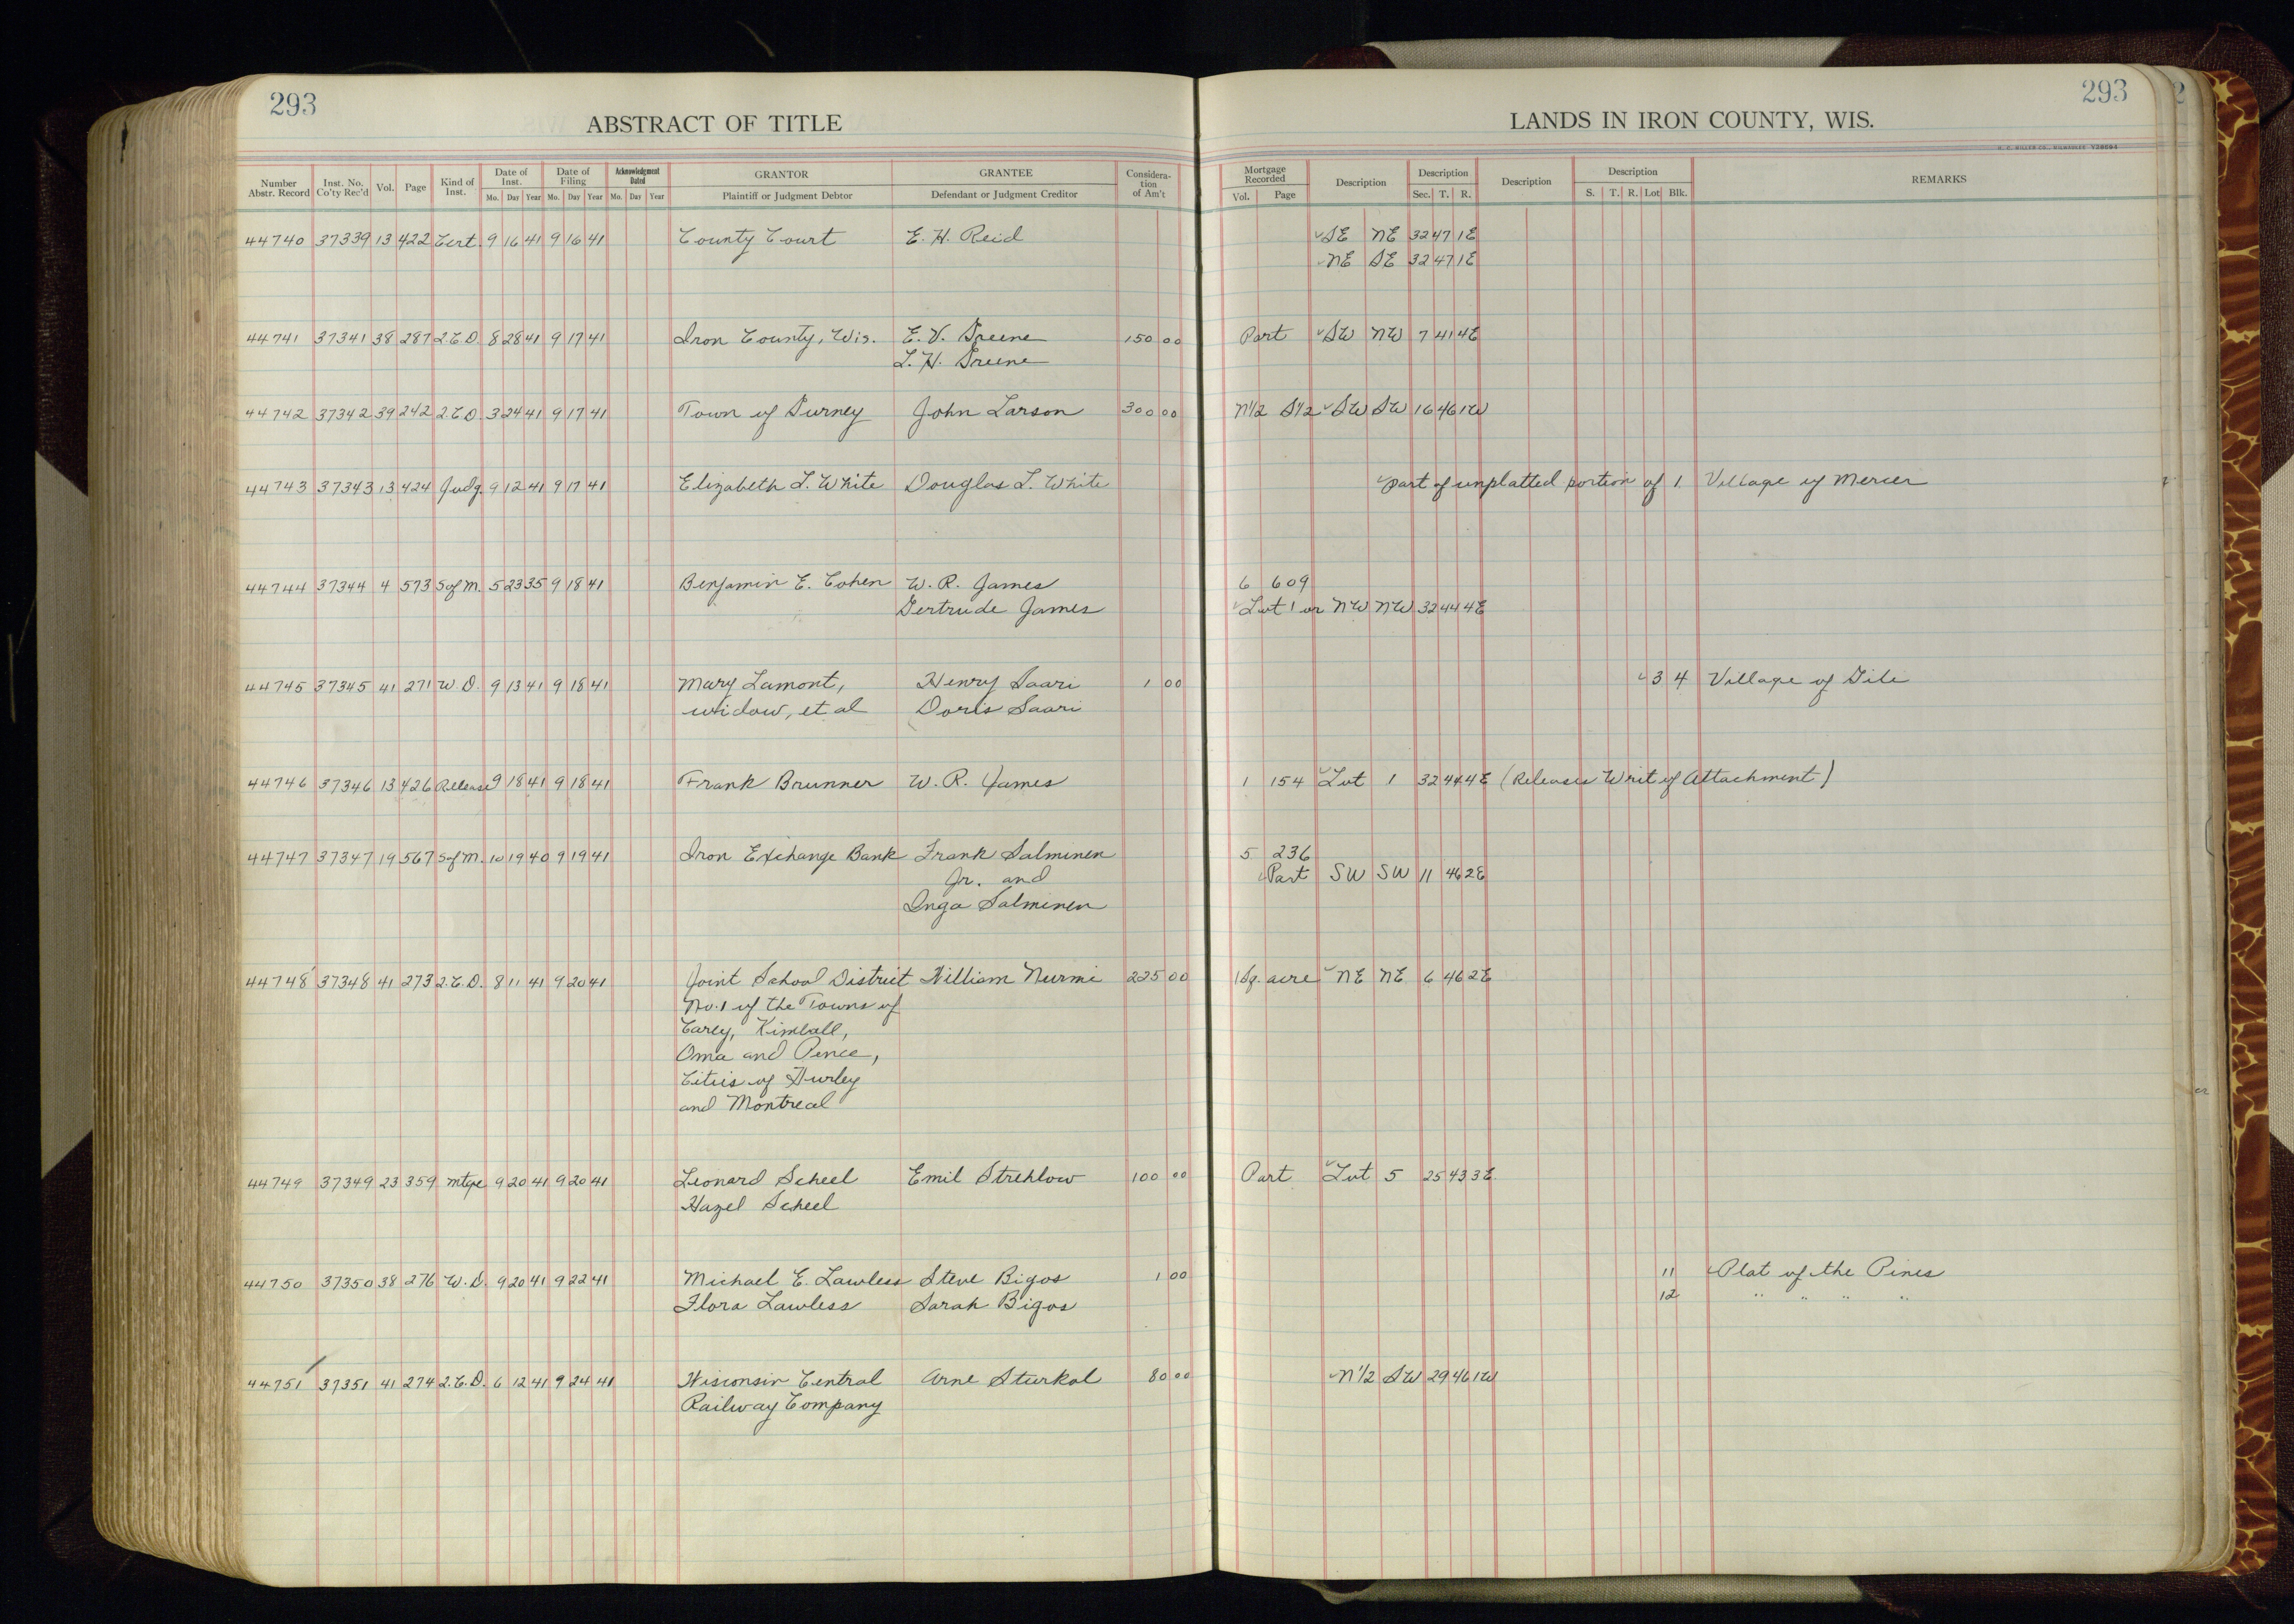 293
ABSTRACT OF TITLE
Number Abstr. Record
Inst. No. Co'ty Rec'd
Vol.
Page
Kind of Inst.
Date of Inst.
Mo. Day Year
Date of Filing
Mo. Day Year
Acknowledgment Dated
Mo. Day Year
GRANTOR
Plaintiff or Judgment Debtor
GRANTEE
Defendant or Judgment Creditor
Considera-tion of Am't
293
LANDS IN IRON COUNTY, WIS.
H. C. MILLER CO., MILWAUKEE
Mortgage Recorded
Vol. Page
Description
Description
Sec. T. R.
Description
Description
S. T. R. Lot Blk.
REMARKS
44740 37339 13 422 Cert. 9 16 41 9 16 41 County Court E. H. Reid SE NE 32 47 1E
NE SE 32 47 1E
44741 37341 38 287 2.C.D. 8 28 41 9 17 41 Iron County, Wis. E. V. Greene 150 00 Part SW NW 7 41 4E
L. H. Greene
44742 37342 39 242 2.C.D. 3 24 41 9 17 41 Town of Gurney John Larson 300 00 N1/2 S1/2 SW SW 16 46 1W
44743 37343 13 424 Judg. 9 12 41 9 17 41 Elizabeth L. White Douglas L. White Part of unplatted portion of 1 Village of Mercer
44744 37344 4 573 S of M. 5 23 35 9 18 41 Benjamin E. Cohen W. R. James 6 609
Gertrude James Lot 1 or NW NW 32 44 4E
44745 37345 41 271 W.D. 9 13 41 9 18 41 Mary Lamont, Henry Saari 1 00 3 4 Village of Gile
widow, et al Doris Saari
44746 37346 13 426 Release 9 18 41 9 18 41 Frank Brunner W. R. James 1 154 Lot 1 32 44 4E (Releases Writ of Attachment)
44747 37347 19 567 S of M. 10 19 40 9 19 41 Iron Exchange Bank Frank Salminen 5 236
Jr. and Part SW SW 11 46 2E
Inga Salminen
44748 37348 41 273 2.C.D. 8 11 41 9 20 41 Joint School District William Nurmi 225 00 1 Sq. acre NE NE 6 46 2E
No. 1 of the Towns of
Carey, Kimball,
Oma and Pence,
Cities of Hurley
and Montreal
44749 37349 23 359 Mtge 9 20 41 9 20 41 Leonard Scheel Emil Strehlow 100 00 Part Lot 5 25 43 3E
Hazel Scheel
44750 37350 38 276 W.D. 9 20 41 9 22 41 Michael E. Lawless Steve Bigos 1 00 11 Plat of the Pines
Flora Lawless Sarah Bigos 12 " " " "
44751 37351 41 274 2.C.D. 6 12 41 9 24 41 Wisconsin Central Arne Sturkol 80 00 N1/2 SW 29 46 1W
Railway Company